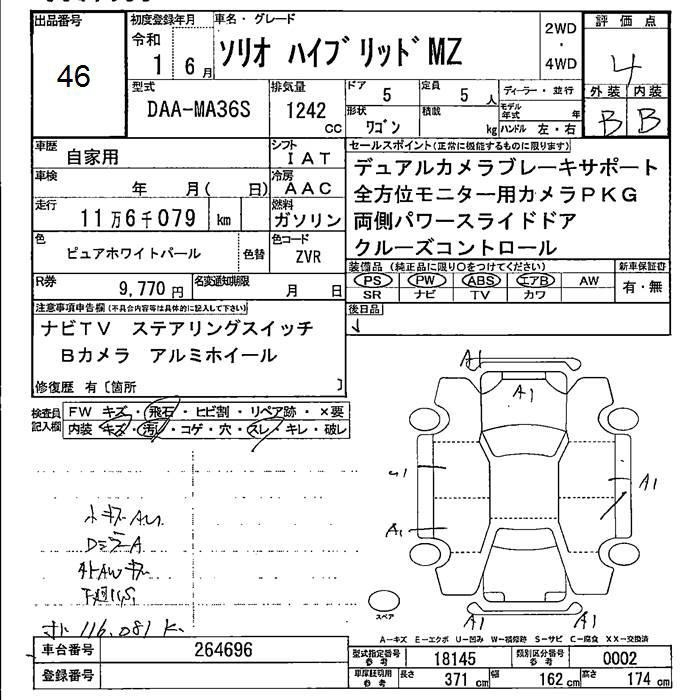 出品番号
46
初度登録年月
令和
1 6月
車名・グレード
ソリオ ハイブリッドMZ
2WD
・
4WD
評価点
4
外装 内装
B B
型式
DAA-MA36S
排気量
1242
cc
ドア
5
定員
5 人
形状
ワゴン
積載
kg
ディーラー・並行
モデル年式 年
ハンドル 左・右
車歴
自家用
シフト
IAT
車検
年 月( 日)
冷房
AAC
走行
11万6千079 km
燃料
ガソリン
色
ピュアホワイトパール
色替
色コード
ZVR
R券
9,770円
名変通知期限
月 日
セールスポイント(正常に機能するものに限ります)
デュアルカメラブレーキサポート
全方位モニター用カメラPKG
両側パワースライドドア
クルーズコントロール
装備品(純正品に限り○をつけてください)
PS PW ABS エアB AW
SR ナビ TV カワ
新車保証書
有・無
後日品
注意事項申告欄(不具合内容等は具体的に記入して下さい)
ナビTV ステアリングスイッチ
Bカメラ アルミホイール
修復歴 有〔箇所 〕
検査員記入欄
FW キズ・飛石・ヒビ割・リペア跡・×要
内装 キズ・汚れ・コゲ・穴・スレ・キレ・破レ
A1
A1
A1
A1
A1
A1
スペア
116,081 K
A−キズ E−エクボ U−凹み W−補修跡 S−サビ C−腐食 XX−交換済
車台番号
264696
登録番号
型式指定番号 参考
18145
類別区分番号 参考
0002
車庫証明用 参考
長さ 371 cm 幅 162 cm 高さ 174 cm